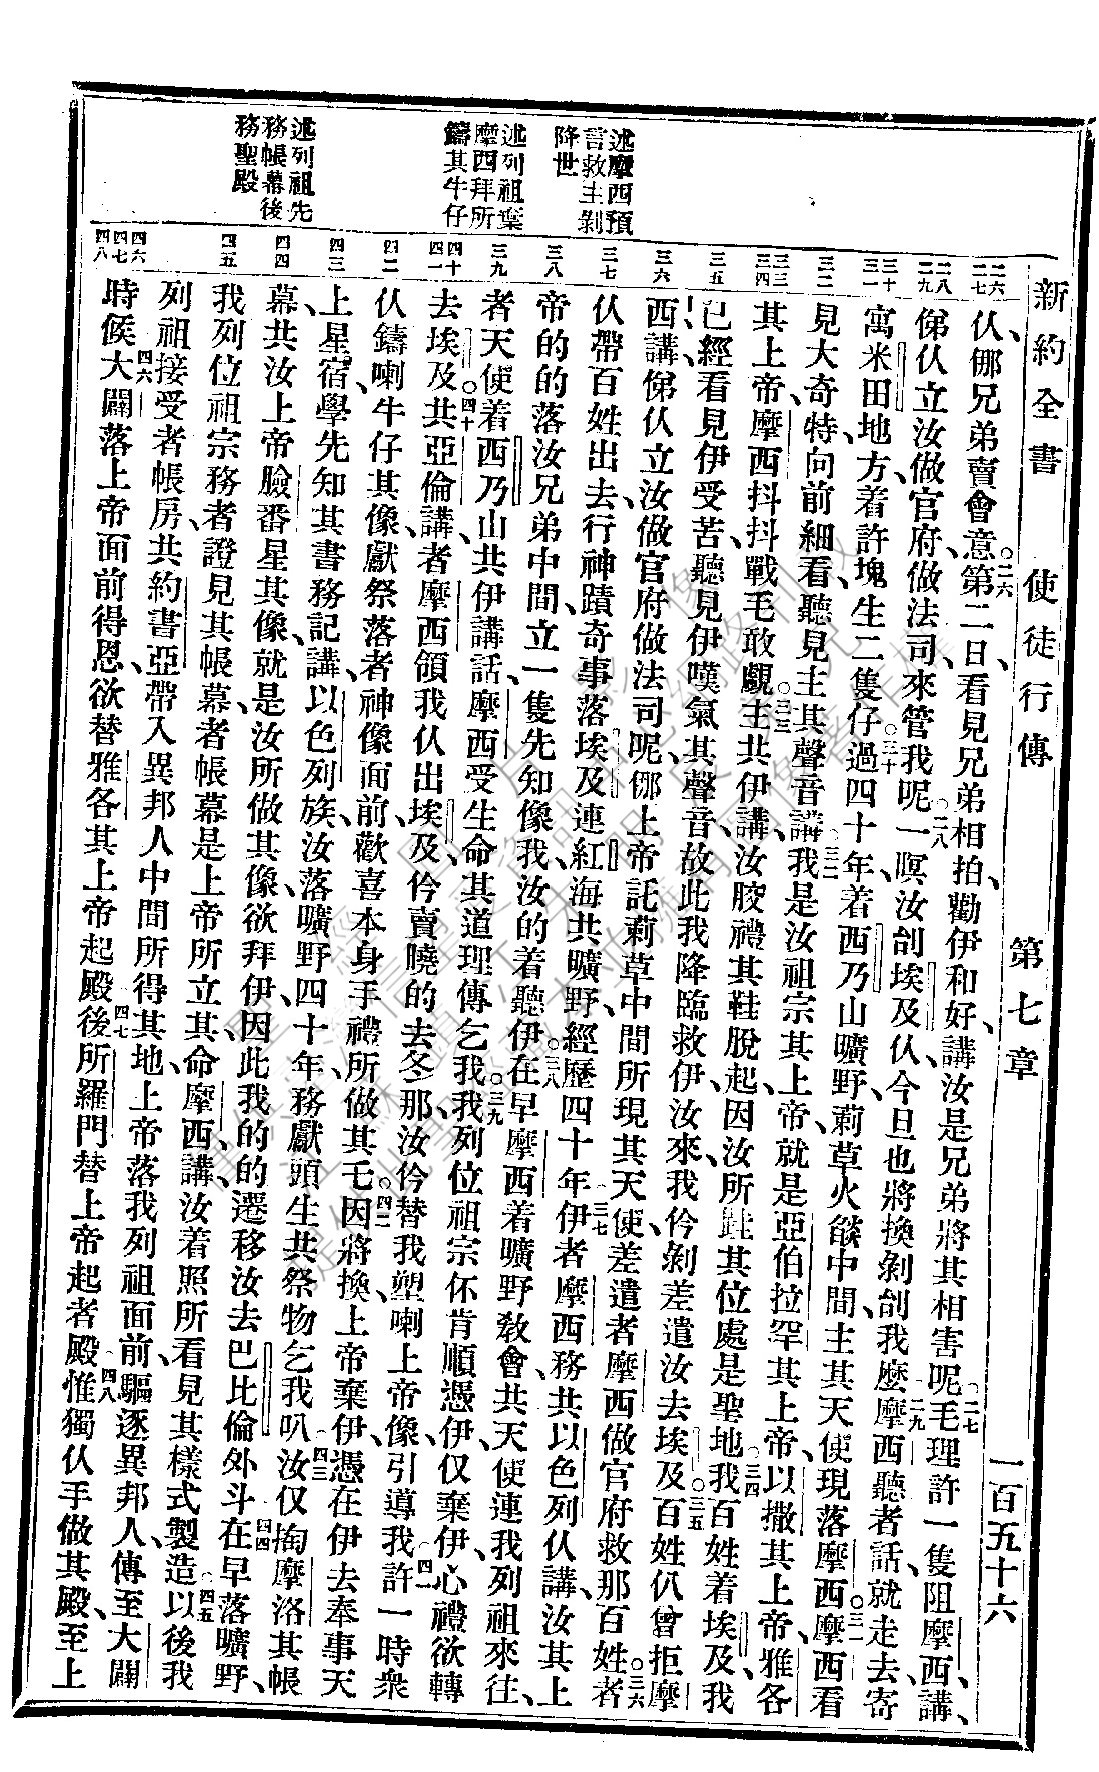 新約全書　使徒行傳　第七章　一百五十六
述摩西預
言救主剝
降世
述列祖棄
摩西拜所
鑄其牛仔
述列祖先
務帳幕後
務聖殿
二六
二七
二八
二九
三十
三一
三二
三三
三四
三五
三六
三七
三八
三九
四十
四一
四二
四三
四四
四五
四六
四七
四八
仈㑚兄弟賣會意。二六第二日、看見兄弟相拍、勸伊和好、講、汝是兄弟將其相害呢。二七毛理許一隻阻摩西、講、
俤仈立汝做官府、做法司、來管我呢。二八一暝汝刣埃及仈、今旦也將換剝刣我麼。二九摩西聽者話、就走去寄
寓米田地方、着許塊生二隻仔。三十過四十年、着西乃山曠野、莿草火燄中間、主其天使現落摩西。三一摩西看
見大奇特、向前細看、聽見主其聲音、講、三二我是汝祖宗其上帝、就是亞伯拉罕其上帝、以撒其上帝、雅各
其上帝、摩西抖抖戰、毛敢覷。三三主共伊講、汝骹禮其鞋脫起、因汝所跬其位處是聖地。三四我百姓着埃及、我
已經看見伊受苦、聽見伊嘆氣其聲音、故此我降臨救伊、汝來、我仱剝差遣汝去埃及。三五百姓仈曾拒摩
西、講、俤仈立汝做官府做法司呢、㑚上帝託莿草中間所現其天使、差遣者摩西做官府救那百姓。三六者
仈帶百姓出去、行神蹟奇事落埃及、連紅海、共曠野、經歷四十年。三七伊者摩西務共以色列仈講、汝其上
帝的的落汝兄弟中間、立一隻先知像我、汝的着聽伊。三八在早摩西着曠野教會、共天使、連我列祖來往、
者天使着西乃山共伊講話、摩西受生命其道理傳乞我。三九我列位祖宗伓肯順憑伊、仅棄伊、心禮欲轉
去埃及。四十共亞倫講、者摩西領我仈出埃及、仱賣曉的去冬那、汝仱替我塑喇上帝像、引導我。四一許一時衆
仈鑄喇牛仔其像、獻祭落者神像面前、歡喜本身手禮所做其乇。四二因將換、上帝棄伊、憑在伊去奉事天
上星宿、學先知其書務記、講、以色列族、汝落曠野四十年、務獻頭生共祭物乞我叭。四三汝仅掏摩洛其帳
幕、共汝上帝臉番星其像、就是汝所做其像、欲拜伊、因此我的的遷移汝去巴比倫外斗。四四在早落曠野、
我列位祖宗務者證見其帳幕、者帳幕是上帝所立其、命摩西講、汝着照所看見其樣式製造。四五以後我
列祖接受者帳房、共約書亞帶入異邦人中間所得其地、上帝落我列祖面前、驅逐異邦人、傳至大闢
時候。四六大闢落上帝面前得恩、欲替雅各其上帝起殿。四七後所羅門替上帝起者殿。四八惟獨仈手做其殿、至上